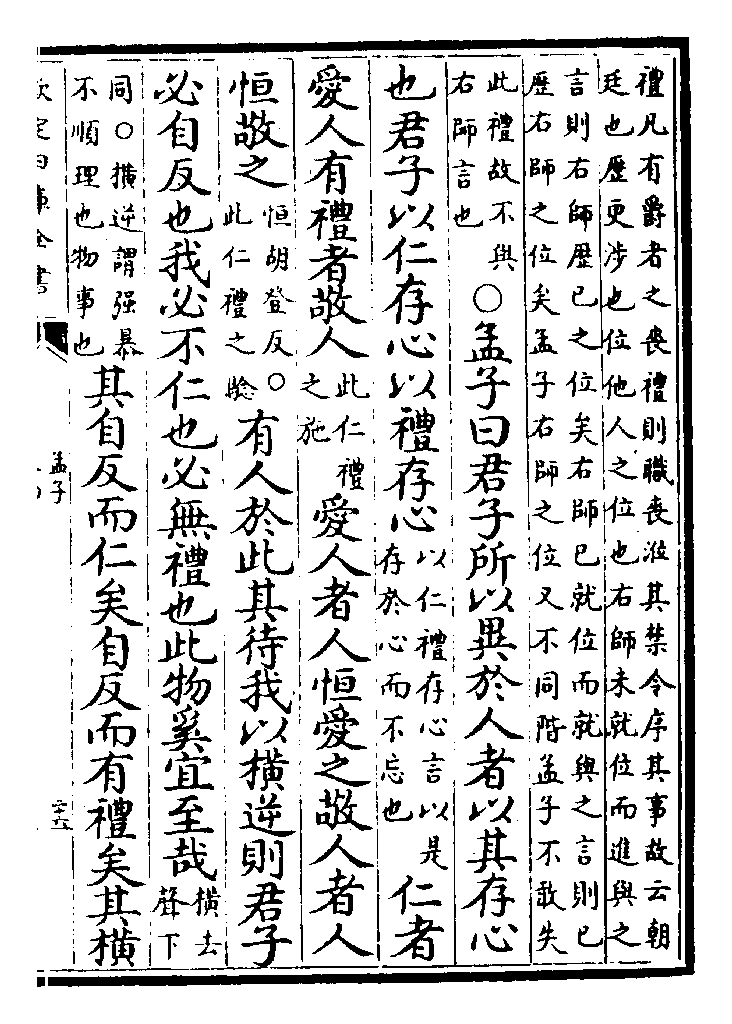 禮凡有爵者之喪禮則職喪涖其禁令序其事故云朝
廷也歷更涉也位他人之位也右師未就位而進與之
言則右師歷已之位矣右師已就位而就與之言則已
歷右師之位矣孟子右師之位又不同階孟子不敢失
此禮故不與
右師言也
○孟子曰君子所以異於人者以其存心
也君子以仁存心以禮存心
以仁禮存心言以是
存於心而不忘也
仁者
愛人有禮者敬人
此仁禮
之施
愛人者人恒愛之敬人者人
恒敬之
恒胡登反○
此仁禮之驗
有人於此其待我以橫逆則君子
必自反也我必不仁也必無禮也此物奚宜至哉
橫去
聲下
同○橫逆謂强暴
不順理也物事也
其自反而仁矣自反而有禮矣其橫
欽定四庫全書
孟子
二十六